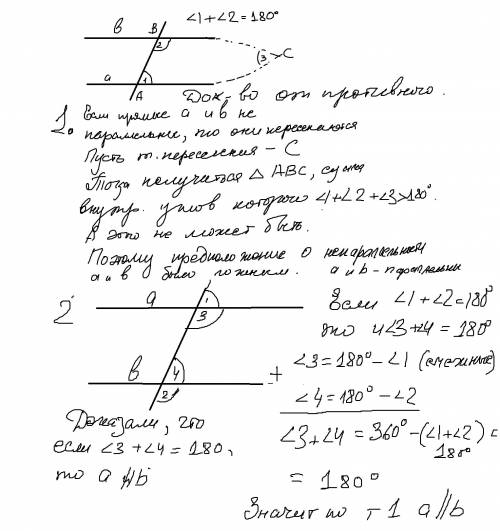 ∠1+∠2=180°
в B
2
3 C
а 1
A
Док-во от противного.
1. Если прямые а и в не
параллельны, то они пересекаются
Пусть т. пересечения - С
Тогда получится △ ABC, сумма
внутр. углов которого ∠1+∠2+∠3>180°.
А это не может быть.
Поэтому предположение о непараллельности
а и в было ложным. а и b - параллельны
2
a 1
3
в 4
2
Если ∠1+∠2=180°
то и ∠3+∠4=180°
∠3=180°-∠1 (смежные)
+
∠4=180°-∠2
∠3+∠4=360°-(∠1+∠2)=
180°
=180°
Доказали, что
если ∠3+∠4=180,
то a ∦ b
Значит по т 1 a∥b